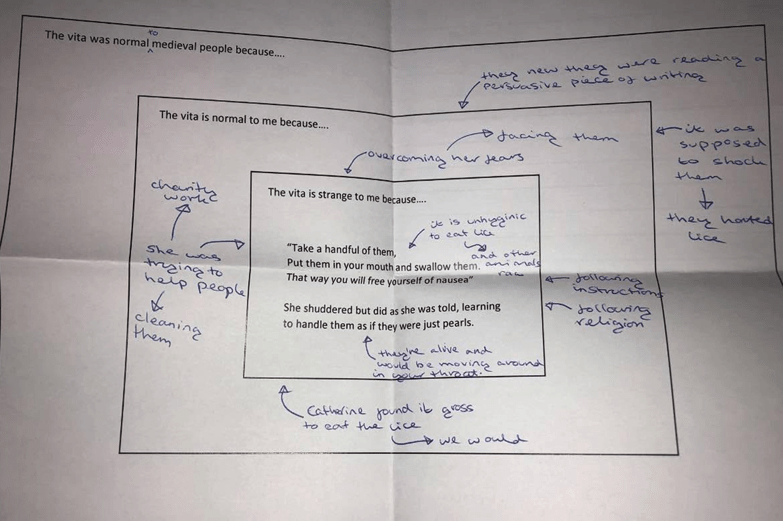 The vita was normal to medieval people because....
they new they were reading a
persuasive piece of writing
The vita is normal to me because....
overcoming her fears
facing them
it was
supposed
to shock
them
they hated
lice
charity
work
she was
trying to
help people
cleaning
them
The vita is strange to me because....
it is unhyginic
to eat lice
and other
animals
raw
"Take a handful of them,
Put them in your mouth and swallow them.
That way you will free yourself of nausea"
She shuddered but did as she was told, learning
to handle them as if they were just pearls.
they're alive and
would be moving around
in your throat.
following
instructions
following
religion
Catherine found it gross
to eat the lice
we would